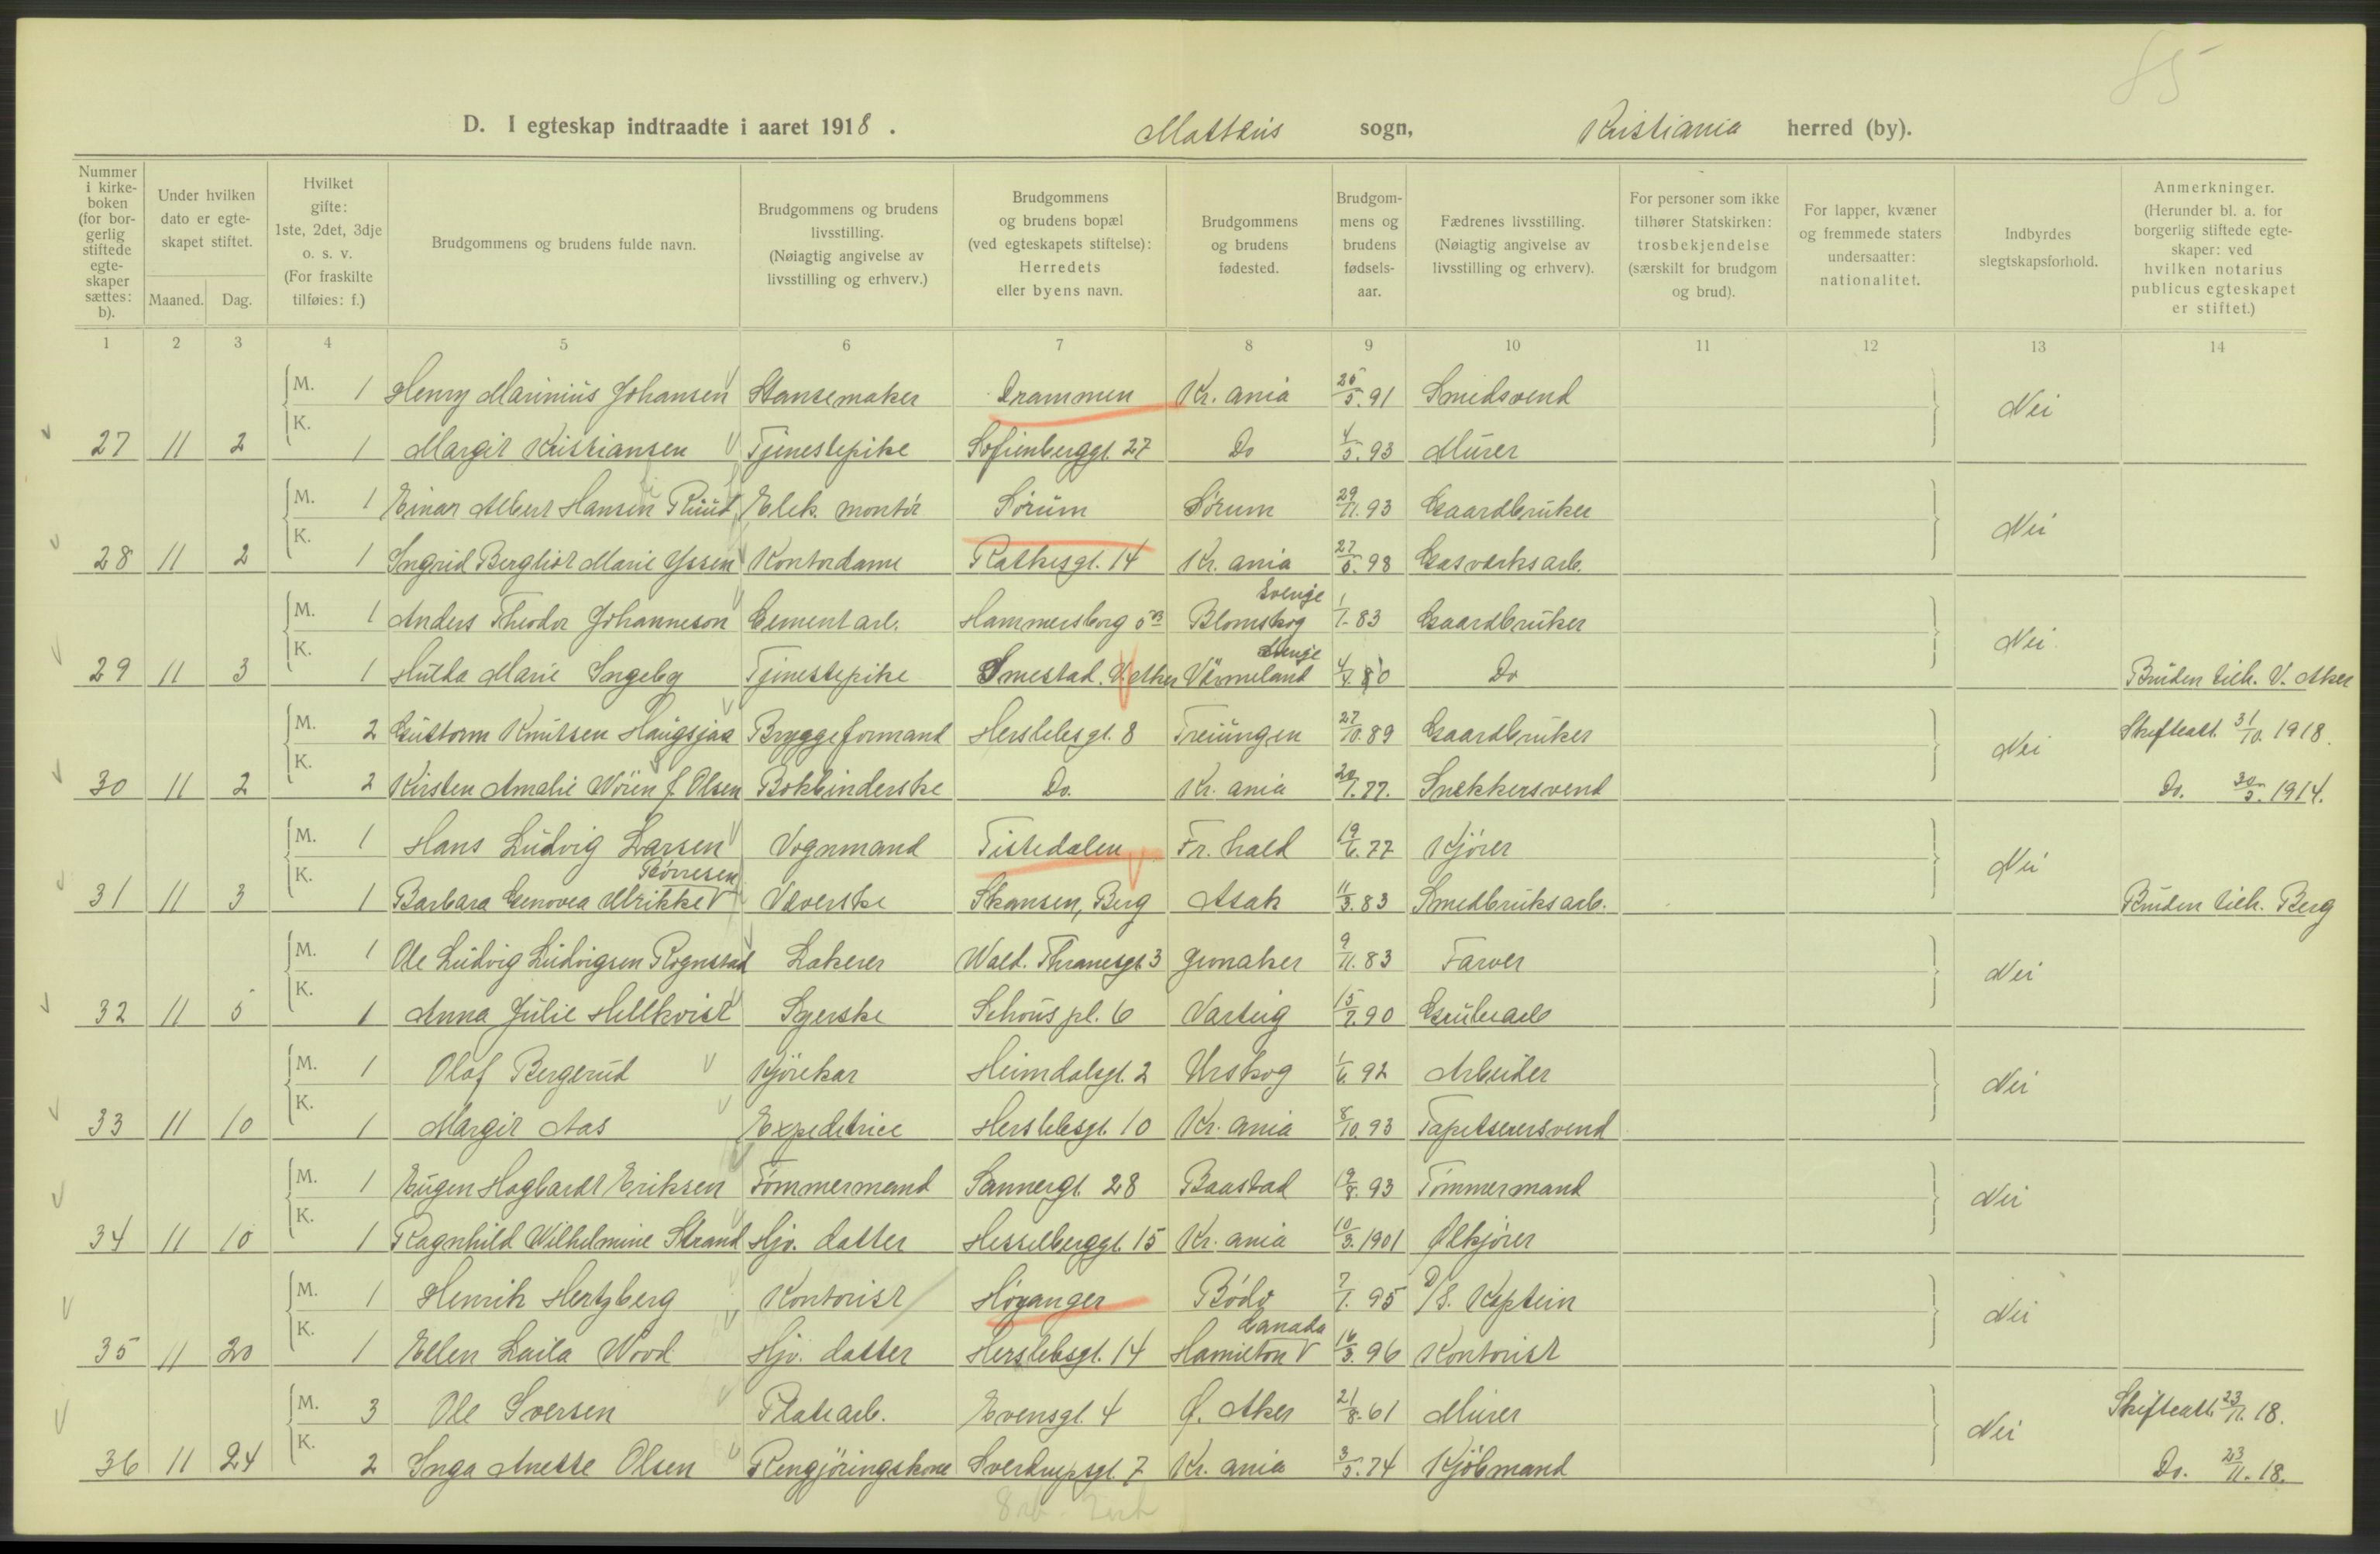 85
D. I egteskap indtraadte i aaret 1918. Mattæus sogn, Kristiania herred (by).
Nummer i kirkeboken (for borgerlig stiftede egteskaper sættes: b). | Under hvilken dato er egteskapet stiftet. Maaned. Dag. | Hvilket gifte: 1ste, 2det, 3dje o. s. v. (For fraskilte tilføies: f.) | Brudgommens og brudens fulde navn. | Brudgommens og brudens livsstilling. (Nøiagtig angivelse av livsstilling og erhverv.) | Brudgommens og brudens bopæl (ved egteskapets stiftelse): Herredets eller byens navn. | Brudgommens og brudens fødested. | Brudgommens og brudens fødselsaar. | Fædrenes livsstilling. (Nøiagtig angivelse av livsstilling og erhverv). | For personer som ikke tilhører Statskirken: trosbekjendelse (særskilt for brudgom og brud). | For lapper, kvæner og fremmede staters undersaatter: nationalitet. | Indbyrdes slegtskapsforhold. | Anmerkninger. (Herunder bl. a. for borgerlig stiftede egteskaper: ved hvilken notarius publicus egteskapet er stiftet.)
1 2 3 4 5 6 7 8 9 10 11 12 13 14
M. 1 Henry Marinius Johansen Stansemaker Drammen Kr.ania 25/5.91 Smedsvend Nei
27 11 2 K. 1 Margit Kristiansen Tjenestepike Sofienberggt. 27 Do 4/5.93 Murer
M. 1 Einar Albert Hansen Ruud Elek. montør Sørum Sørum 29/11.93 Gaardbruker Nei
28 11 2 K. 1 Ingrid Bergliot Marie Yssen Kontordame Rathkesgt. 14 Kr.ania 27/5.98 Gasværksarb.
M. 1 Anders Theodor Johanneson Cementarb. Hammersborg 5B Blomskog Sverige 1/1.83 Gaardbruker Nei
29 11 3 K. 1 Hulda Marie Ingeby Tjenestepike Smestad. V. Aker Värmeland Sverige 4/7.80 Do Bruden tilh. V. Aker
M. 2 Guttorm Knutsen Haugsjaa Bryggeformand Herslebsgt. 8 Treungen 27/10.89 Gaardbruker Nei Skifteatt. 31/10. 1918.
30 11 2 K. 2 Kirsten Amalie Wöien f. Olsen Bokbinderske Do. Kr.ania 20/7.77. Snekkersvend Do. 30/5. 1914.
M. 1 Hans Ludvig Larsen Vognmand Tistedalen Fr.hald 19/6.77 Kjører Nei
31 11 3 K. 1 Barbara Genovea Ulrikke Børresen Væverske Skansen, Berg Asak 11/3.83 Smedbruksarb. Bruden tilh. Berg
M. 1 Ole Ludvig Ludvigsen Rognstad Lakerer Wald. Thranesgt. 3 Jevnaker 9/11.83 Farver Nei
32 11 5 K. 1 Anna Julie Hellkvist Syerske Schous pl. 6 Varteig 15/7.90 Grubearb
M. 1 Olaf Bergerud Kjörekar Heimdalsgt. 2 Urskog 1/6.92 Arbeider Nei
33 11 10 K. 1 Margit Aas Expeditrice Herslebsgt. 10 Kr.ania 8/10.93 Tapetserersvend
M. 1 Eugen Hagbardt Eriksen Tømmermand Sannergt. 28 Baastad 19/8.93 Tømmermand Nei
34 11 10 K. 1 Ragnhild Wilhelmine Strand Hjv. datter Hesselberggt. 15 Kr.ania 10/3.1901 Ølkjører
M. 1 Henrik Hertzberg Kontorist Høyanger Bodø 7/1.95 D/S. Kaptein Nei
35 11 20 K. 1 Ellen Laila Wood Hjv. datter Herslebsgt. 14 Hamilton Canada 16/3.96 Kontorist
M. 3 Ole Iversen Platearb. Evensgt. 4 Ø. Aker 21/8.61 Murer Nei Skifteatt. 23/11. 18.
36 11 24 K. 2 Inga Anette Olsen Rengjöringskone Sverdrupsgt. 7 Kr.ania 3/5.74 Kjøbmand Do. 23/11. 18.